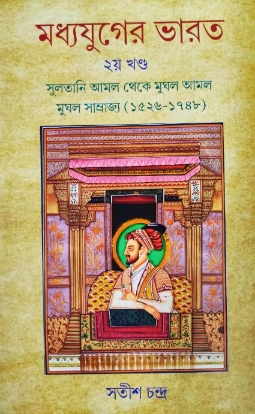 মধ্যযুগের ভারত
২য় খণ্ড
সুলতানি আমল থেকে মুঘল আমল
মুঘল সাম্রাজ্য (১৫২৬-১৭৪৮)
সতীশ চন্দ্র